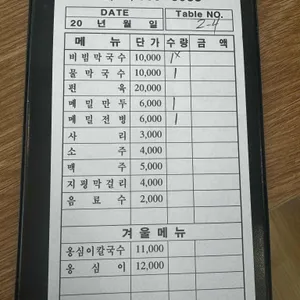 DATE Table NO.
20 년 월 일 2-4
메 뉴 단가 수량 금 액
비빔막국수 10,000 1
물막국수 10,000 1
편 육 20,000
메밀만두 6,000 1
메밀전병 6,000 1
사 리 3,000
소 주 4,000
맥 주 5,000
지평막걸리 4,000
음 료 수 2,000
겨울메뉴
옹심이칼국수 11,000
옹 심 이 12,000